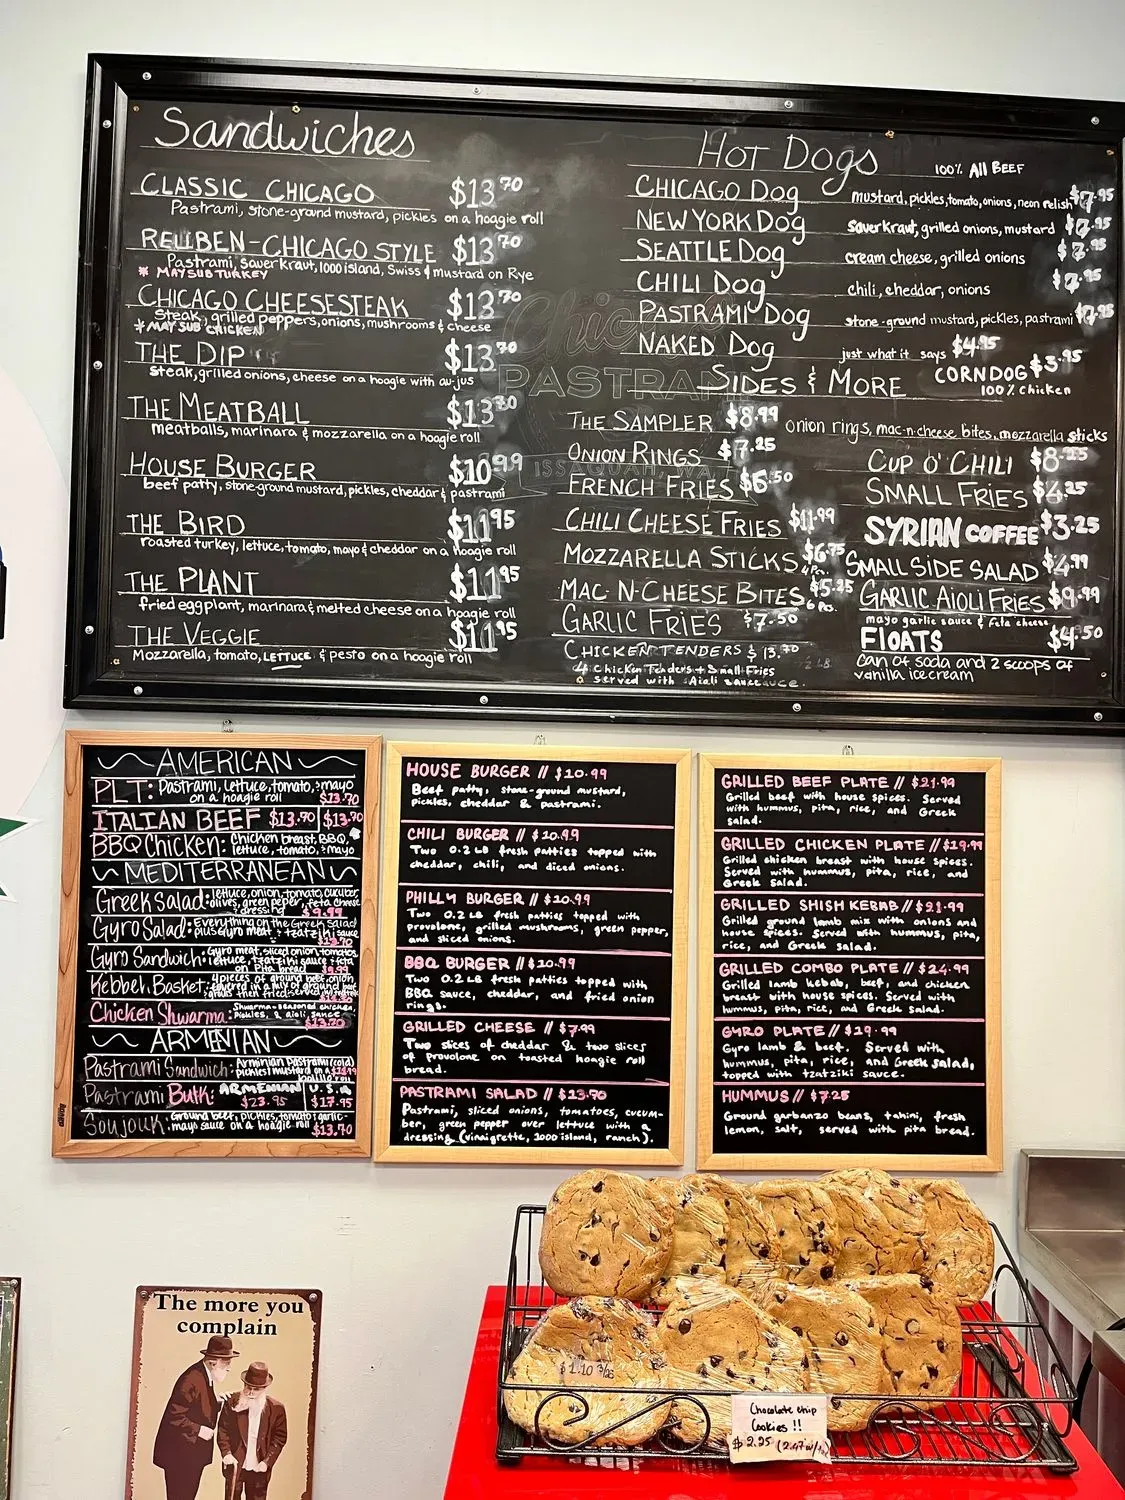 Sandwiches
CLASSIC CHICAGO $13.70
Pastrami, stone-ground mustard, pickles on a hoagie roll
REUBEN-CHICAGO STYLE $13.70
Pastrami, Sauerkraut, 1000 island, Swiss & mustard on Rye
* MAY SUB TURKEY
CHICAGO CHEESESTEAK $13.70
Steak, grilled peppers, onions, mushrooms & cheese
* MAY SUB CHICKEN
THE DIP $13.70
steak, grilled onions, cheese on a hoagie with au-jus
THE MEATBALL $13
meatballs, marinara & mozzarella on a hoagie roll
HOUSE BURGER $10.99
beef patty, stone-ground mustard, pickles, cheddar & pastrami
THE BIRD $11.95
roasted turkey, lettuce, tomato, mayo & cheddar on a hoagie roll
THE PLANT $11.95
fried eggplant, marinara & melted cheese on a hoagie roll
THE VEGGIE $11.95
Mozzarella, tomato, LETTUCE & pesto on a hoagie roll
Hot Dogs 100% All BEEF
CHICAGO Dog mustard, pickles, tomato, onions, neon relish $7.95
NEW YORK Dog sauerkraut, grilled onions, mustard $7.95
SEATTLE Dog cream cheese, grilled onions $7.95
CHILI Dog chili, cheddar, onions $7.95
PASTRAMI Dog stone-ground mustard, pickles, pastrami $7.95
NAKED Dog just what it says $4.95
CORNDOG $3.95
100% chicken
SIDES & MORE
THE SAMPLER $8.99 onion rings, mac-n-cheese bites, mozzarella sticks
ONION RINGS $7.25
FRENCH FRIES $6.50
CHILI CHEESE FRIES $11.99
MOZZARELLA STICKS $6.75
4 Pcs.
MAC N-CHEESE BITES $5.25
6 Pcs.
GARLIC FRIES $7.50
CHICKEN TENDERS $13.70
4 Chicken Tenders + Small Fries
served with Aioli sauce
CUP O' CHILI $8.25
SMALL FRIES $4.25
SYRIAN COFFEE $3.25
SMALL SIDE SALAD $4.99
GARLIC AIOLI FRIES $9.99
mayo garlic sauce & feta cheese
FLOATS $4.50
can of soda and 2 scoops of
vanilla icecream
Chicago
PASTRAMI
ISSAQUAH, WA
AMERICAN
PLT: Pastrami, lettuce, tomato, & mayo
on a hoagie roll $13.70
ITALIAN BEEF $13.70 $13.70
BBQ Chicken: Chicken breast, BBQ,
lettuce, tomato, & mayo
MEDITERRANEAN
Greek Salad: lettuce, onion, tomato, cucumber,
olives, green peper, feta cheese
& dressing $9.99
Gyro Salad: Everything on the Greek salad
plus Gyro meat & tzatziki sauce
$13.70
Gyro Sandwich: Gyro meat, sliced onion, tomatoes,
lettuce, tzatziki sauce & feta
on Pita bread $9.99
Kebbeh Basket: 4 pieces of ground beef, onion
covered in a mix of ground beef
grains then fried served
Chicken Shwarma: Shwarma-seasoned chicken,
Pickles, & aioli sauce
$13.70
ARMENIAN
Pastrami Sandwich: Arminian Pastrami (cold)
pickles mustard on a
Pastrami Bulk: ARMENIAN $23.95 U.S.A $17.95
Soujouk: Ground beef, pickles, tomato & garlic-
mayo sauce on a hoagie roll $13.70
HOUSE BURGER // $10.99
Beef patty, stone-ground mustard,
pickles, cheddar & pastrami.
CHILI BURGER // $10.99
Two 0.2 LB fresh patties topped with
cheddar, chili, and diced onions.
PHILLY BURGER // $10.99
Two 0.2 LB fresh patties topped with
provolone, grilled mushrooms, green pepper,
and sliced onions.
BBQ BURGER // $10.99
Two 0.2 LB fresh patties topped with
BBQ sauce, cheddar, and fried onion
rings.
GRILLED CHEESE // $7.99
Two slices of cheddar & two slices
of provolone on toasted hoagie roll
bread.
PASTRAMI SALAD // $13.70
Pastrami, sliced onions, tomatoes, cucum-
ber, green pepper over lettuce with a
dressing (vinaigrette, 1000 island, ranch).
GRILLED BEEF PLATE // $21.99
Grilled beef with house spices. Served
with hummus, pita, rice, and Greek
salad.
GRILLED CHICKEN PLATE // $19.99
Grilled chicken breast with house spices.
Served with hummus, pita, rice, and
Greek salad.
GRILLED SHISH KEBAB // $21.99
Grilled ground lamb mix with onions and
house spices. Served with hummus, pita,
rice, and Greek salad.
GRILLED COMBO PLATE // $24.99
Grilled lamb kebab, beef, and chicken
breast with house spices. Served with
hummus, pita, rice, and Greek salad.
GYRO PLATE // $19.99
Gyro lamb & beef. Served with
hummus, pita, rice, and Greek salad,
topped with tzatziki sauce.
HUMMUS // $7.25
Ground garbanzo beans, tahini, fresh
lemon, salt, served with pita bread.
The more you
complain
$1.10
Chocolate chip
Cookies !!
$2.25 (2.47 w/tax)